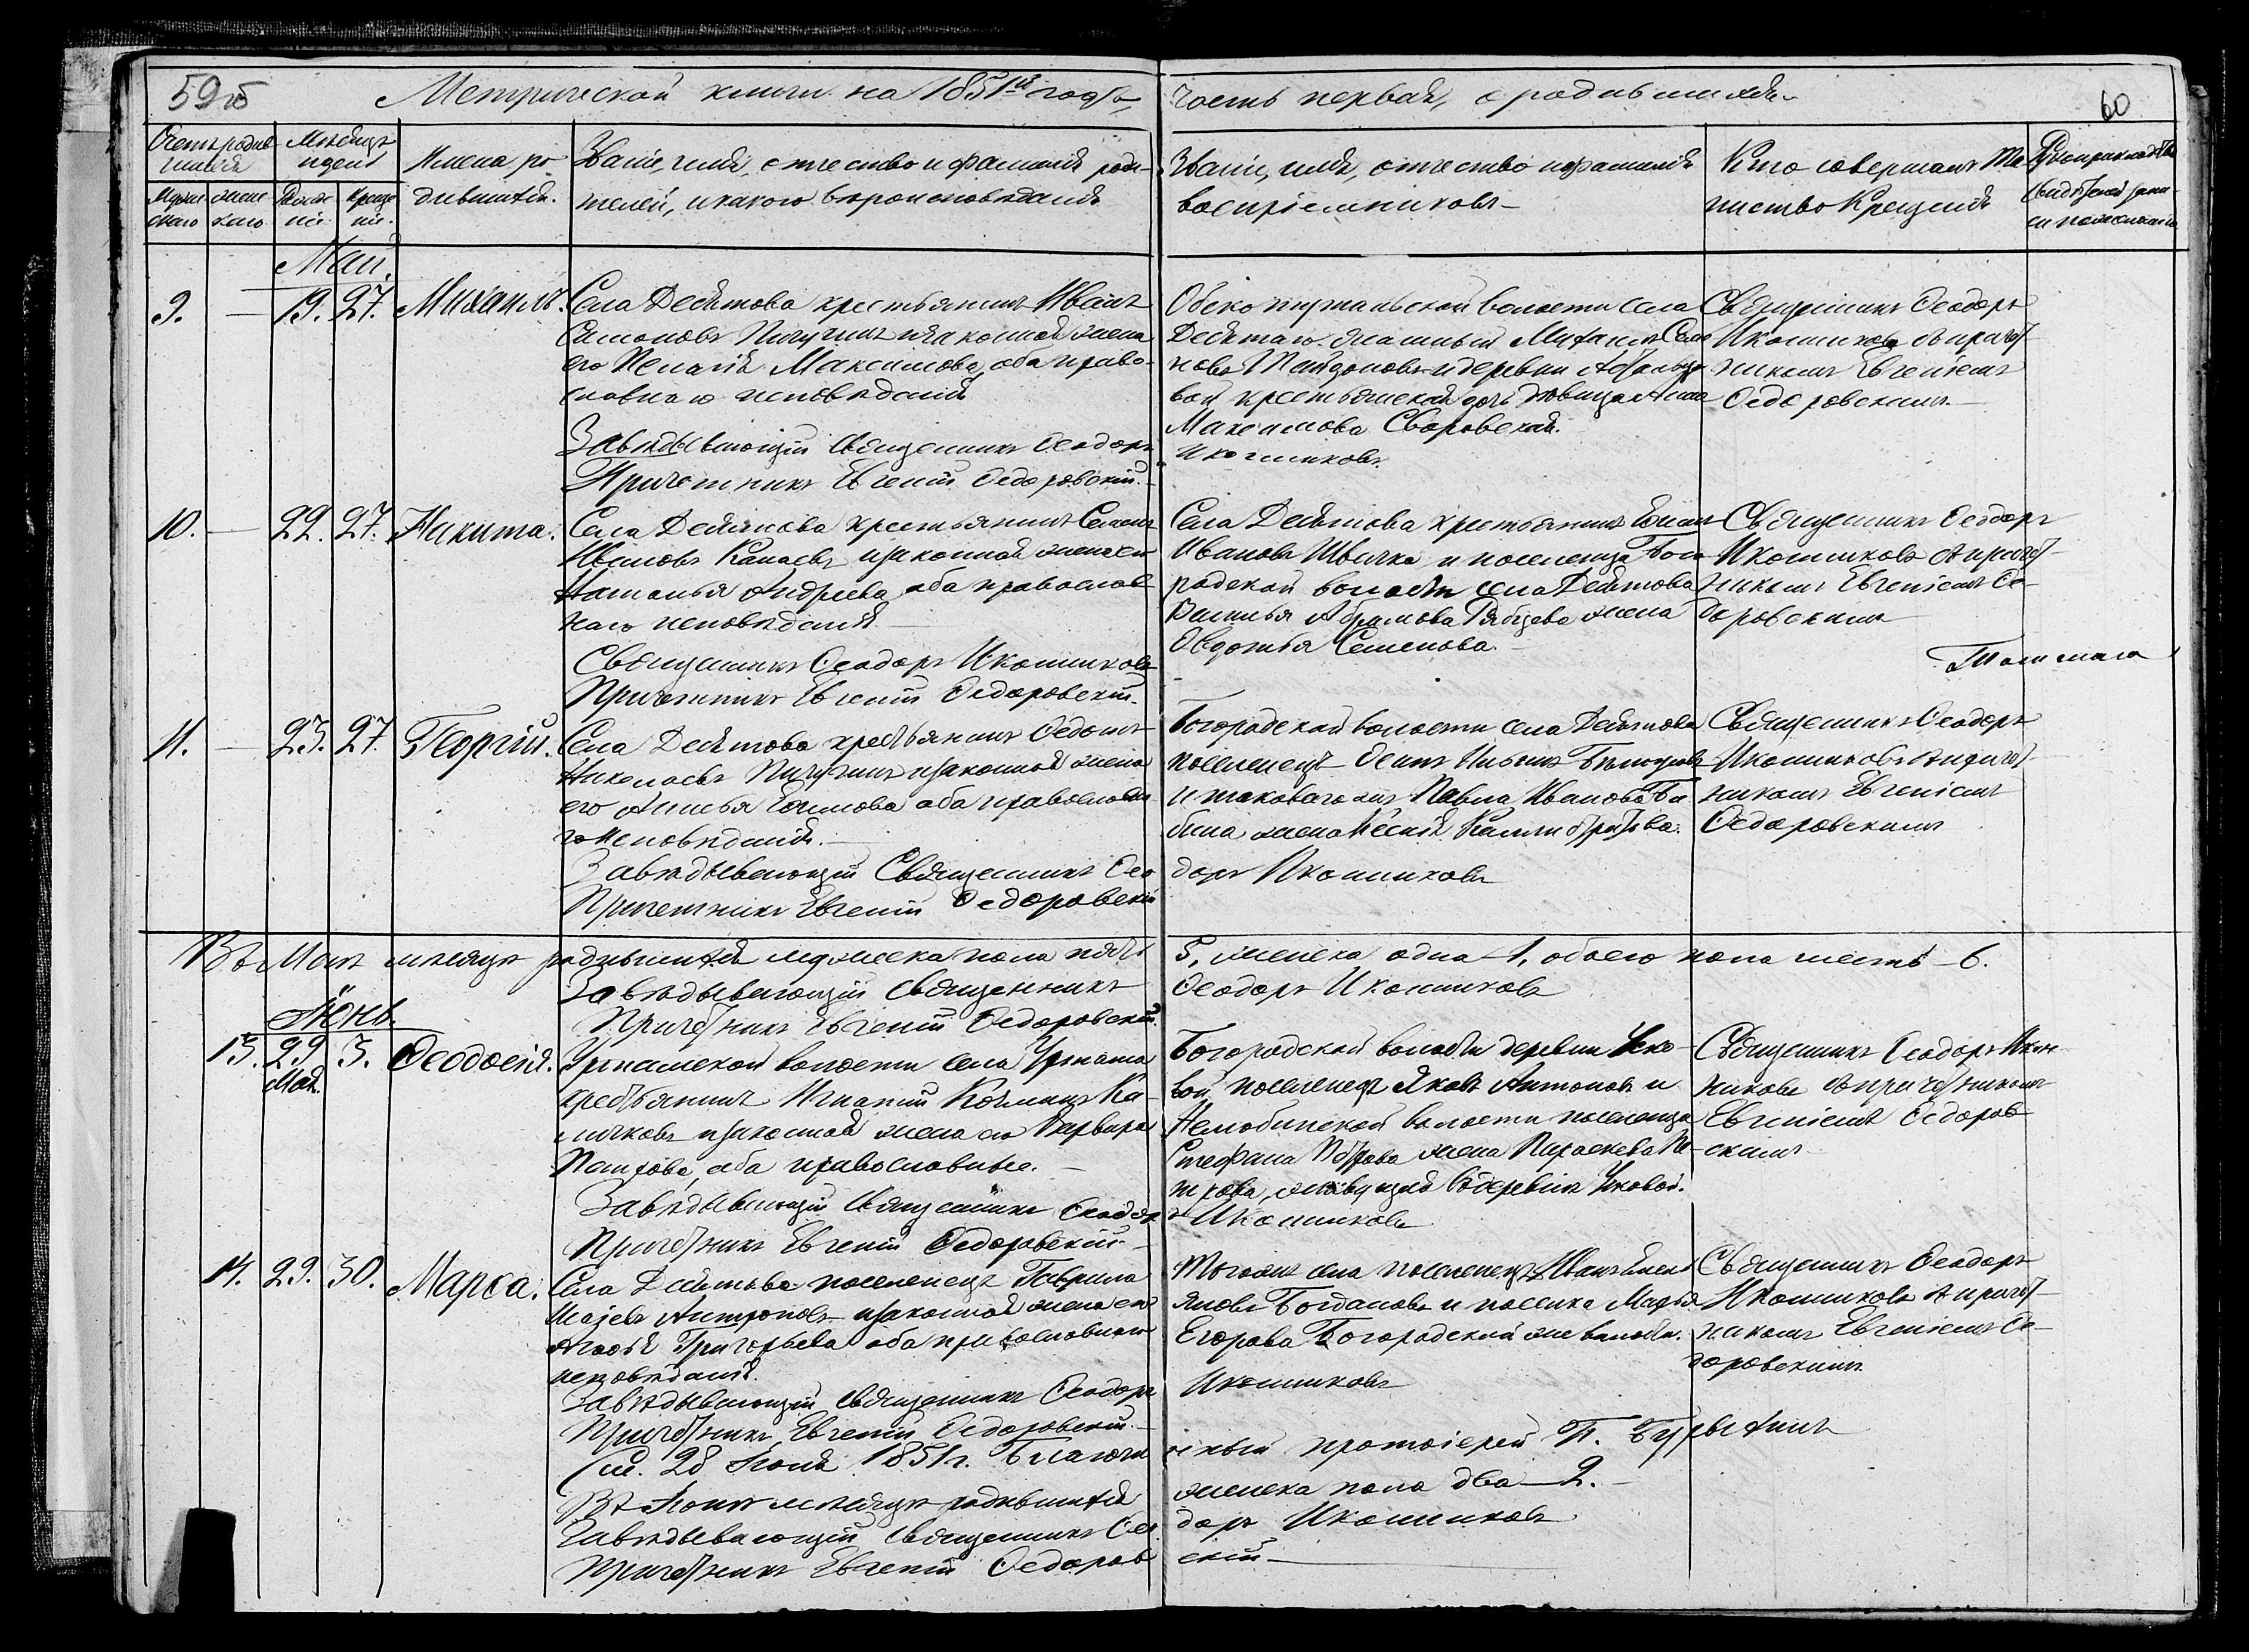 59об
Метрической книги на 1851й годъ,
часть первая, о родившихся
60
Счетъ родив
шихся
Мѣсяцъ
и день
Имена ро
дившихся.
Званіе, имя, отчество и фамилія роди-
телей, и какого вѣроисповѣданія
Званіе, имя, отчество и фамилія
воспріемниковъ
Кто совершалъ Та
инство Крещенія
Мужескаго
женскаго
Рожде
нія
Креще
нія.
Май.
9.
19.
27.
Михаилъ.
Села Десятова крестьянинъ Иванъ
Симоновъ Пичугинъ и законная жена
его Пелагія Максимова, оба право-
славнаго исповѣданія
Завѣдывающій Священникъ Феодоръ
Причетникъ Евгеній Федоровскій.
волости села
Десятаго Михаилъ
и деревни
вой крестьянская дочь дѣвица Анна
Максимова
Иконниковъ
Священникъ Феодоръ
Иконниковъ съ причет
никомъ Евгеніемъ
Федоровскимъ.
10.
22.
27.
Никита.
Села Десятова крестьянинъ
Ивановъ Канаевъ и законная жена его
Наталья Андреева, оба православ
наго исповѣданія
Священникъ Феодоръ Иконниковъ
Причетникъ Евгеній Федоровскій.
Села Десятова крестьянинъ
Ивановъ и поселенца Бого
родской волости села Десятова
Василья Абрамова Рябцева жена
Овдотья Семенова.
Священникъ Феодоръ
Иконниковъ съ причет
никомъ Евгеніемъ Фе-
доровскимъ
11.
23.
27.
Георгій.
Села Десятова крестьянинъ Федотъ
Николаевъ Пичугинъ и законная жена
его Анисья Ефимова оба православна
го исповѣданія.
Завѣдывающій Священникъ Фео
Причетникъ Евгеній Федоровскій
Богородской волости села Десятова
поселенецъ
и таковаго же Павла Иванова Ба
бина жена Ксенія
доръ Иконниковъ
Священникъ Феодоръ
Иконниковъ съ причет
никомъ Евгеніемъ
Федоровскимъ
Въ Маѣ мѣсяцѣ родившихся мужеска пола пять
5, женска одна 1, обоего пола шесть 6.
Завѣдывающій Священникъ
Феодоръ Иконниковъ
Причетникъ Евгеній Федоровскій.
Іюнь
13.
29
Мая.
3.
Феодосія.
Уртамской волости села Уртама
крестьянинъ Игнатій Козминъ Ка
личковъ и законная жена его Варвара
Петрова, оба православные.
Завѣдывающій Священникъ Феодор
Причетникъ Евгеній Федоровскій
Богородской волости деревни
вой поселенецъ Яковъ Антоновъ и
Нелюбинской волости поселенца
Стефана Петрова жена Параскева Пе
трова, живущая въ деревнѣ
ъ Иконниковъ
Священникъ Феодоръ Икон
никовъ съ причетникомъ
Евгеніемъ Федоров
скимъ
14.
29.
30.
Марѳа.
Села Десятова поселенецъ Гаврила
Антроповъ и законная жена его
Агафья Григорьева оба православнаго
исповѣданія.
Завѣдывающій Священникъ Феодоръ
Причетникъ Евгеній Федоровскій
Того же села поселенецъ Иванъ Емель
яновъ Богдановъ и поселка Марья
Егорова Богородской же волости.
Иконниковъ
Священникъ Феодоръ
Иконниковъ съ причет
никомъ Евгеніемъ Фе-
доровскимъ
28 Іюня 1851 г. Благочи
нный протоіерей П.
Въ Іюнѣ мѣсяцѣ родившихся
женска пола два 2.
Завѣдывающій Священникъ Фео
доръ Иконниковъ
Причетникъ Евгеній Федоров
скій